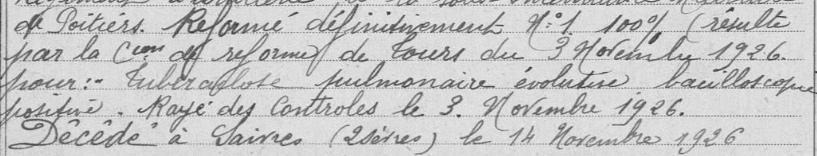 de Poitiers. Reformé définitivement N° 1. 100% (résulte
par la Cion de reforme) de Tours du 3 Novembre 1926.
pour:- Tuberculose pulmonaire évolutive, bacilloscopie
positive. Rayé des Controles le 3. Novembre 1926.
Décédé à Saivres (2 Sèvres) le 14 Novembre 1926